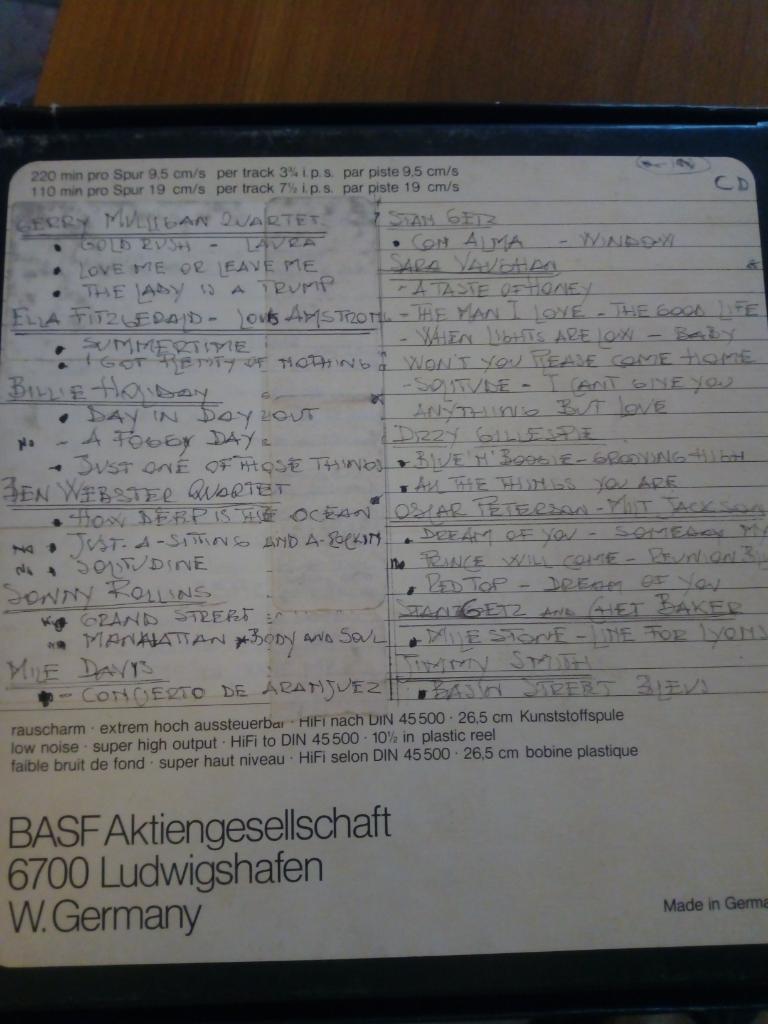 220 min pro Spur 9,5 cm/s per track 3¾ i.p.s. par piste 9,5 cm/s
110 min pro Spur 19 cm/s per track 7½ i.p.s. par piste 19 cm/s
CD
GERRY MULLIGAN QUARTET
• GOLD RUSH - LAURA
• LOVE ME OR LEAVE ME
• THE LADY IS A TRUMP
ELLA FITZGERALD - LOUIS AMSTRONG
• SUMMERTIME
• I GOT PLENTY OF NOTHING
BILLIE HOLIDAY
• DAY IN DAY OUT
No - A FOGGY DAY
- JUST ONE OF THOSE THINGS
BEN WEBSTER QUARTET
• HOW DEEP IS THE OCEAN
No • JUST-A-SITTING AND A-ROCKIN
No • SOLITUDINE
SONNY ROLLINS
GRAND STREET
MANHATTAN BODY AND SOUL
MILE DAVIS
- CONCIERTO DE ARANJUEZ
STAN GETZ
• CON ALMA - WINDOW
SARA VAUGHAN
- A TASTE OF HONEY
- THE MAN I LOVE - THE GOOD LIFE
- WHEN LIGHTS ARE LOW - BABY
WON'T YOU PLEASE COME HOME
- SOLITUDE - I CANT GIVE YOU
ANYTHING BUT LOVE
DIZZY GILLESPIE
• BLUE'N'BOOGIE - GROOVING HIGH
• ALL THE THINGS YOU ARE
OSCAR PETERSON - MILT JACKSON
• DREAM OF YOU - SOMEDAY MY
No PRINCE WILL COME - REUNION
• RED TOP - DREAM OF YOU
STAN GETZ AND CHET BAKER
• MILE STONE - LINE FOR LYONS
JIMMY SMITH
• BASIN STREET BLEUS
rauscharm · extrem hoch aussteuerbar · HiFi nach DIN 45 500 · 26,5 cm Kunststoffspule
low noise · super high output · HiFi to DIN 45 500 · 10½ in plastic reel
faible bruit de fond · super haut niveau · HiFi selon DIN 45 500 · 26,5 cm bobine plastique
BASF Aktiengesellschaft
6700 Ludwigshafen
W. Germany
Made in Germa